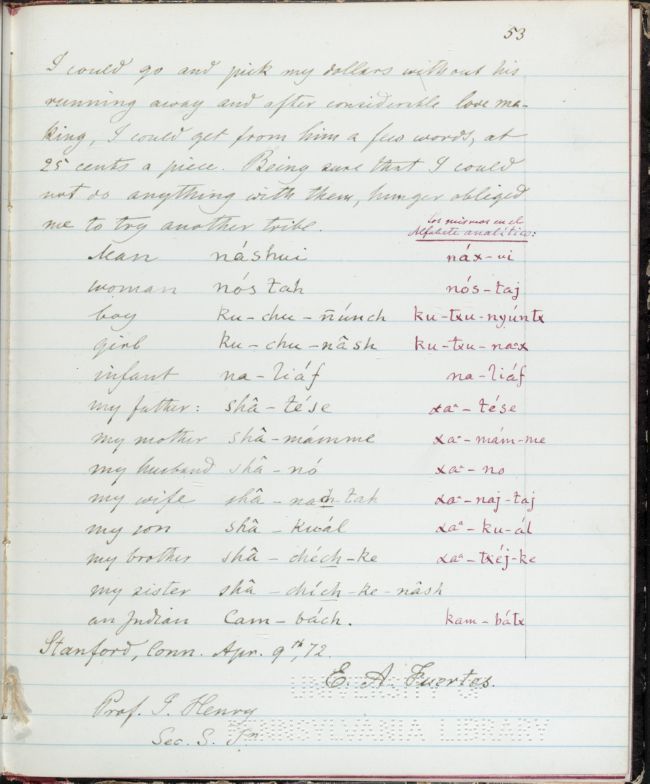 53
I could go and pick my dollars without his
running away and after considerible love ma-
king, I could get from him a few words, at
25 cents a piece. Being sure that I could
not do anything with them, hunger obliged
me to try another tribe.
Los mismos en el
Alfabeto analítico:
Man náshui náx-ui
woman nós tah nós-taj
boy ku-chu-ñúnch ku-txu-nyúntx
girl ku-chu-nâsh ku-txu-naax
infant na-liáf na-liáf
my father: shâ-tése xaa-tése
my mother shâ-mámme xaa-mám-me
my husband shâ-nó xaa-no
my wife shâ-nah-tah xaa-naj-taj
my son shâ-kwál xaa-ku-ál
my brother shâ-chéch-ke xaa-txéj-ke
my sister shâ-chích-ke-nâsh
an Indian Cam-bách. kam-bátx
Stanford, Conn. Apr. 9th, 72
E. A. Fuertes.
Prof. J. Henry
Sec. S. In
UNIVERSITY OF
PENNSYLVANIA LIBRARY